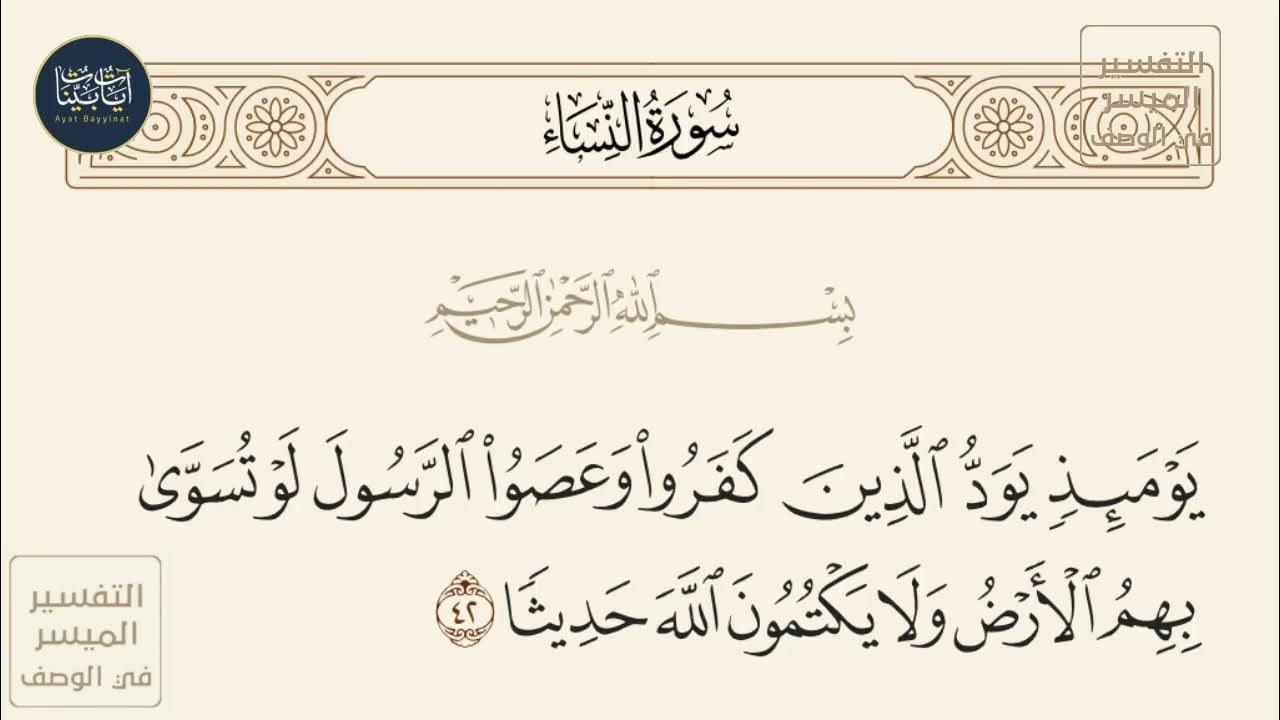 آيات بينات
Ayat Bayyinat
التفسير
الميسر
في الوصف
سُورَةُ النِّسَاءِ
بِسْمِ ٱللَّهِ ٱلرَّحْمَٰنِ ٱلرَّحِيمِ
يَوْمَئِذٖ يَوَدُّ ٱلَّذِينَ كَفَرُواْ وَعَصَوُاْ ٱلرَّسُولَ لَوْ تُسَوَّىٰ
بِهِمُ ٱلْأَرْضُ وَلَا يَكْتُمُونَ ٱللَّهَ حَدِيثٗا ٤٢
التفسير
الميسر
في الوصف